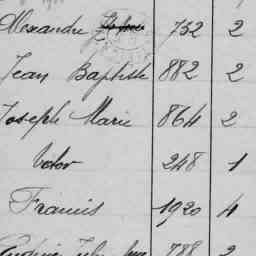 Alexandre 732 2
Jean Baptiste 882 2
Joseph Marie 864 2
Victor 248 1
Francis 1920 4
788 2